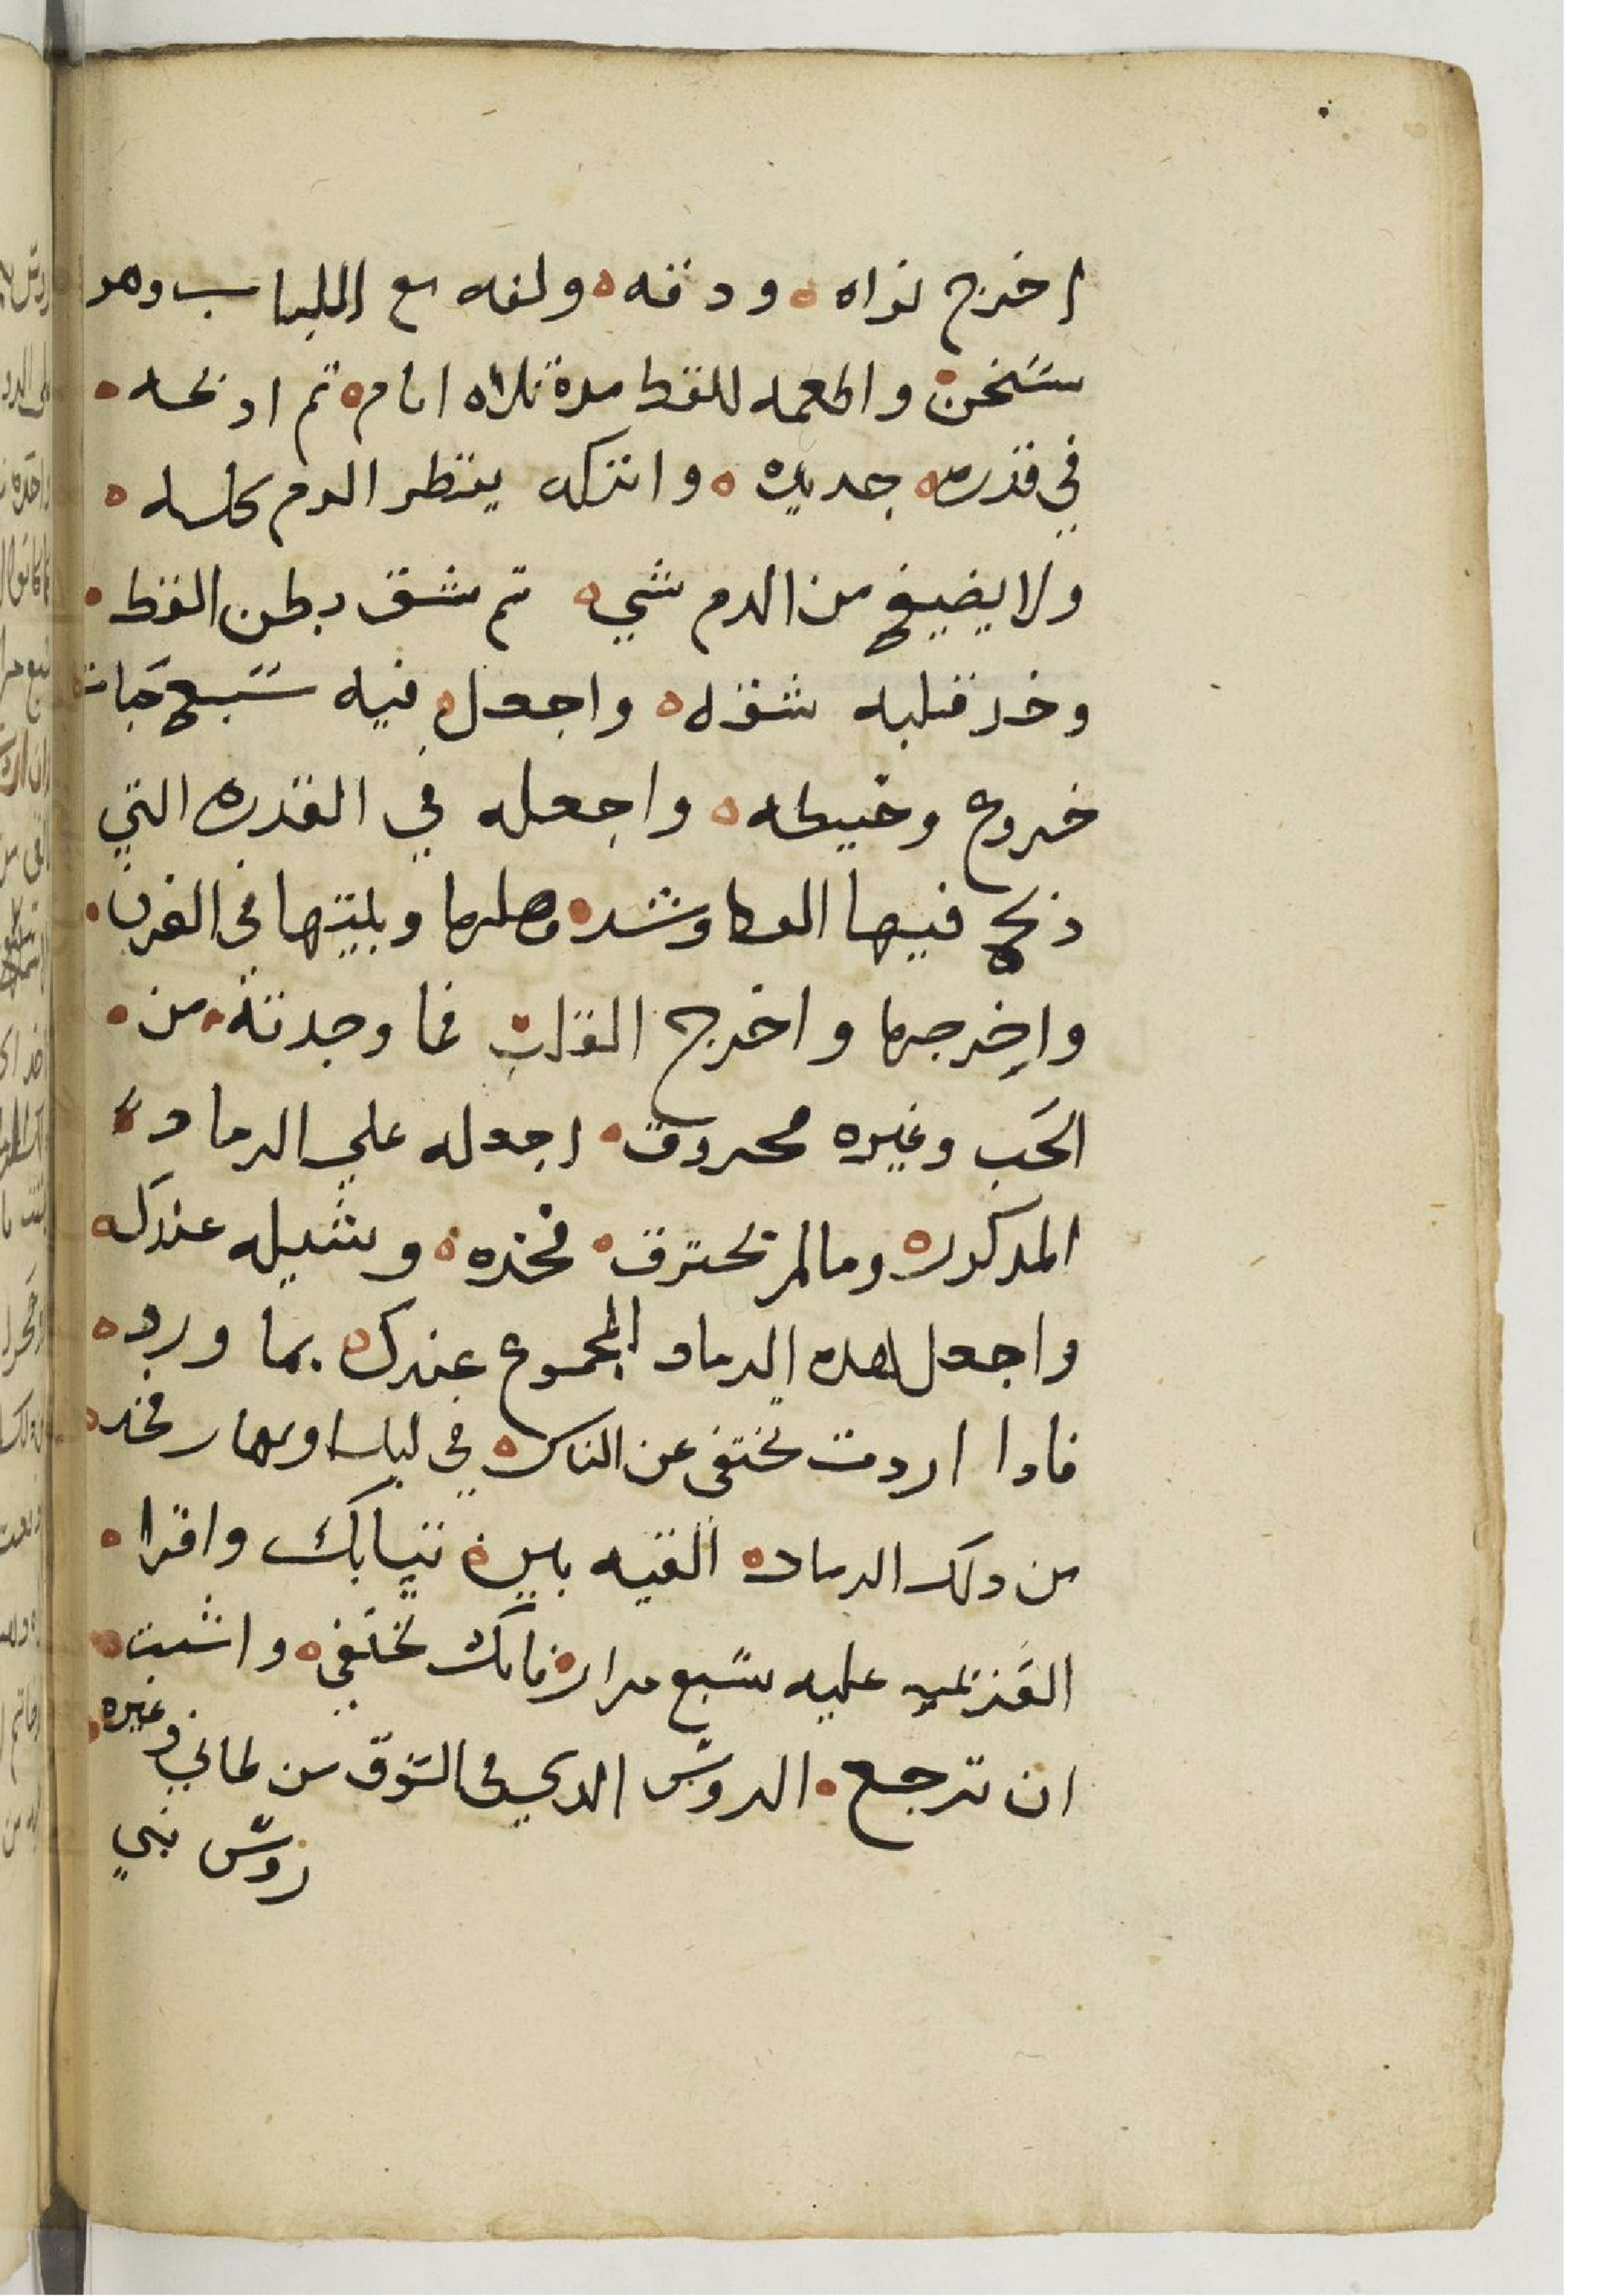 اخرج نواه ودقه ولفه مع اللباب وهو
سخن واطعمه للقط مدة تلاته ايام تم ادبحه
في قدره جديده واتركه ينتظر الدم كلـه
ولا يضيع من الدم شي تم شق بطن القط
وخد قلبه شقه واجعل فيه سبع حبات
خروع وخيطه واجعله في القدره التي
دبح فيها القط وشد وصلها وبيتها في الفرن
واخرجها واخرج القلب فما وجدته من
الحب وغيره محروق اجعله علي الرماد
المدكور وما لم يحترق فخده وشيله عندك
واجعل هده الرماد المجموع عندك بما ورد
فادا اردت تختفي عن الناس في ليل او نهار فخد
من دلك الرماد القيه بين تيابك واقرا
العزيمه عليه سبع مرار فانك تختفي واشبت
ان ترجع الدوس الدي في السوق من لماني وغيره
روس بني